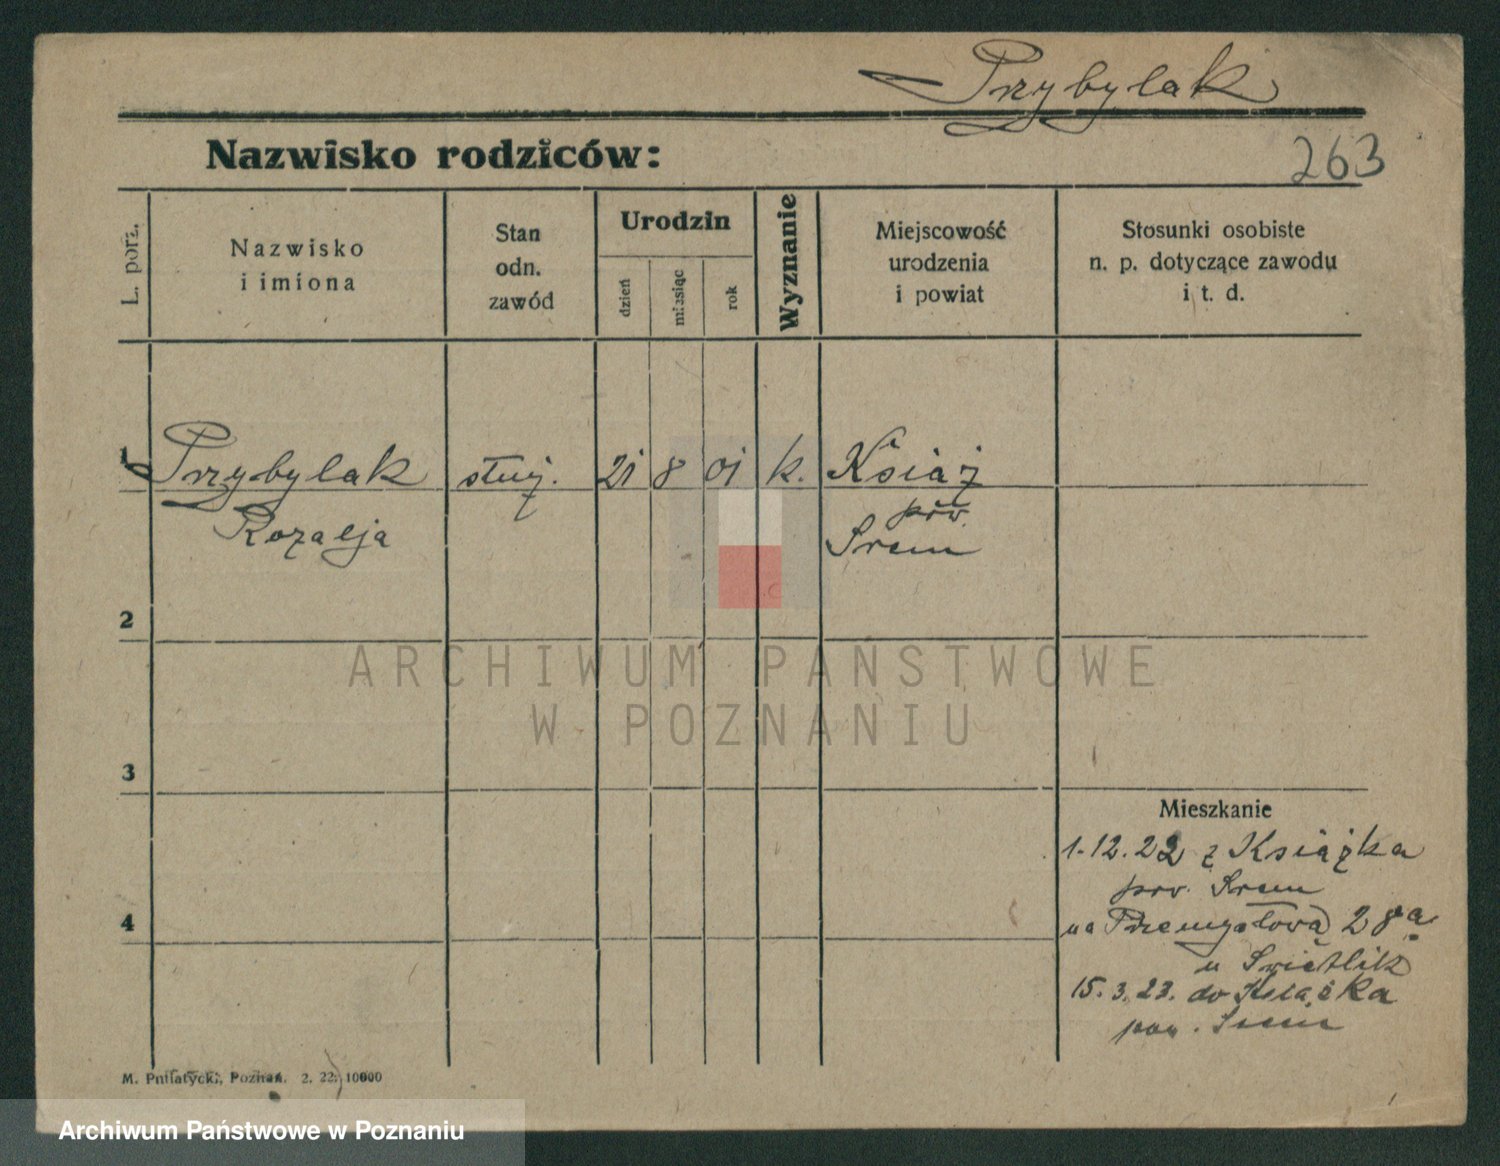 Przybylak
Nazwisko rodziców:
263
L. porz.
Nazwisko
i imiona
Stan
odn.
zawód
Urodzin
dzień
miesiąc
rok
Wyznanie
Miejscowość
urodzenia
i powiat
Stosunki osobiste
n. p. dotyczące zawodu
i t. d.
1 Przybylak służ. 21 8 01 k. Książ
pow.
Rozalja Srem
2
ARCHIWUM PAŃSTWOWE
W POZNANIU
3
Mieszkanie
1.12.22 z Książka
pow. Srem
4
na Przemysłową 28a
u Świetlik
15.3.23. do Książka
pow. Srem
M. Pniatycki, Poznań. 2. 22. 10000
Archiwum Państwowe w Poznaniu